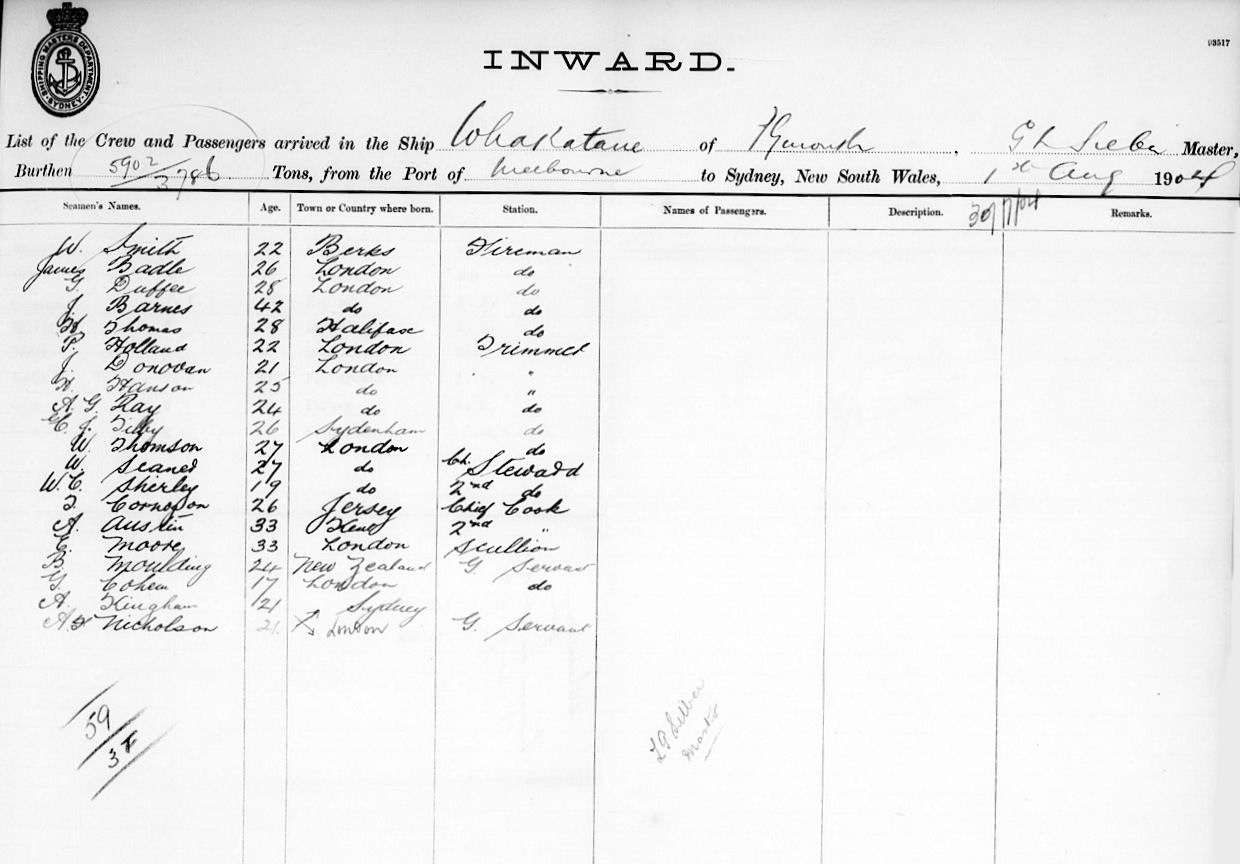 SHIPPING MASTERS DEPARTMENT SYDNEY
93517
INWARD.
List of the Crew and Passengers arrived in the Ship Whakatane of Plymouth, Master,
Burthen 5902/3786 Tons, from the Port of Melbourne to Sydney, New South Wales, 1st Aug 1904
30/7/04
Seamen's Names. Age. Town or Country where born. Station. Names of Passengers. Description. Remarks.
W. Smith 22 Berks Fireman
James Badle 26 London do
G. Duffee 28 London do
J. Barnes 42 do do
H. Thomas 28 Halifax do
P. Holland 22 London Trimmer
J. Donovan 21 London "
H. Hanson 25 do "
A. G. Ray 24 do do
J. Tilby 26 Sydenham do
W. Thomson 27 London do
W. Scaned 27 do Ch. Steward
W. C. Sherley 19 do 2nd do
26 Jersey Chief Cook
A. Austin 33 Kent 2nd "
E. Moore 33 London Scullion
B. Moulding 24 New Zealand G. Servant
G. Cohem 17 London do
A. Kingham 21 Sydney
A. H Nicholson 21 London G. Servant
59
37